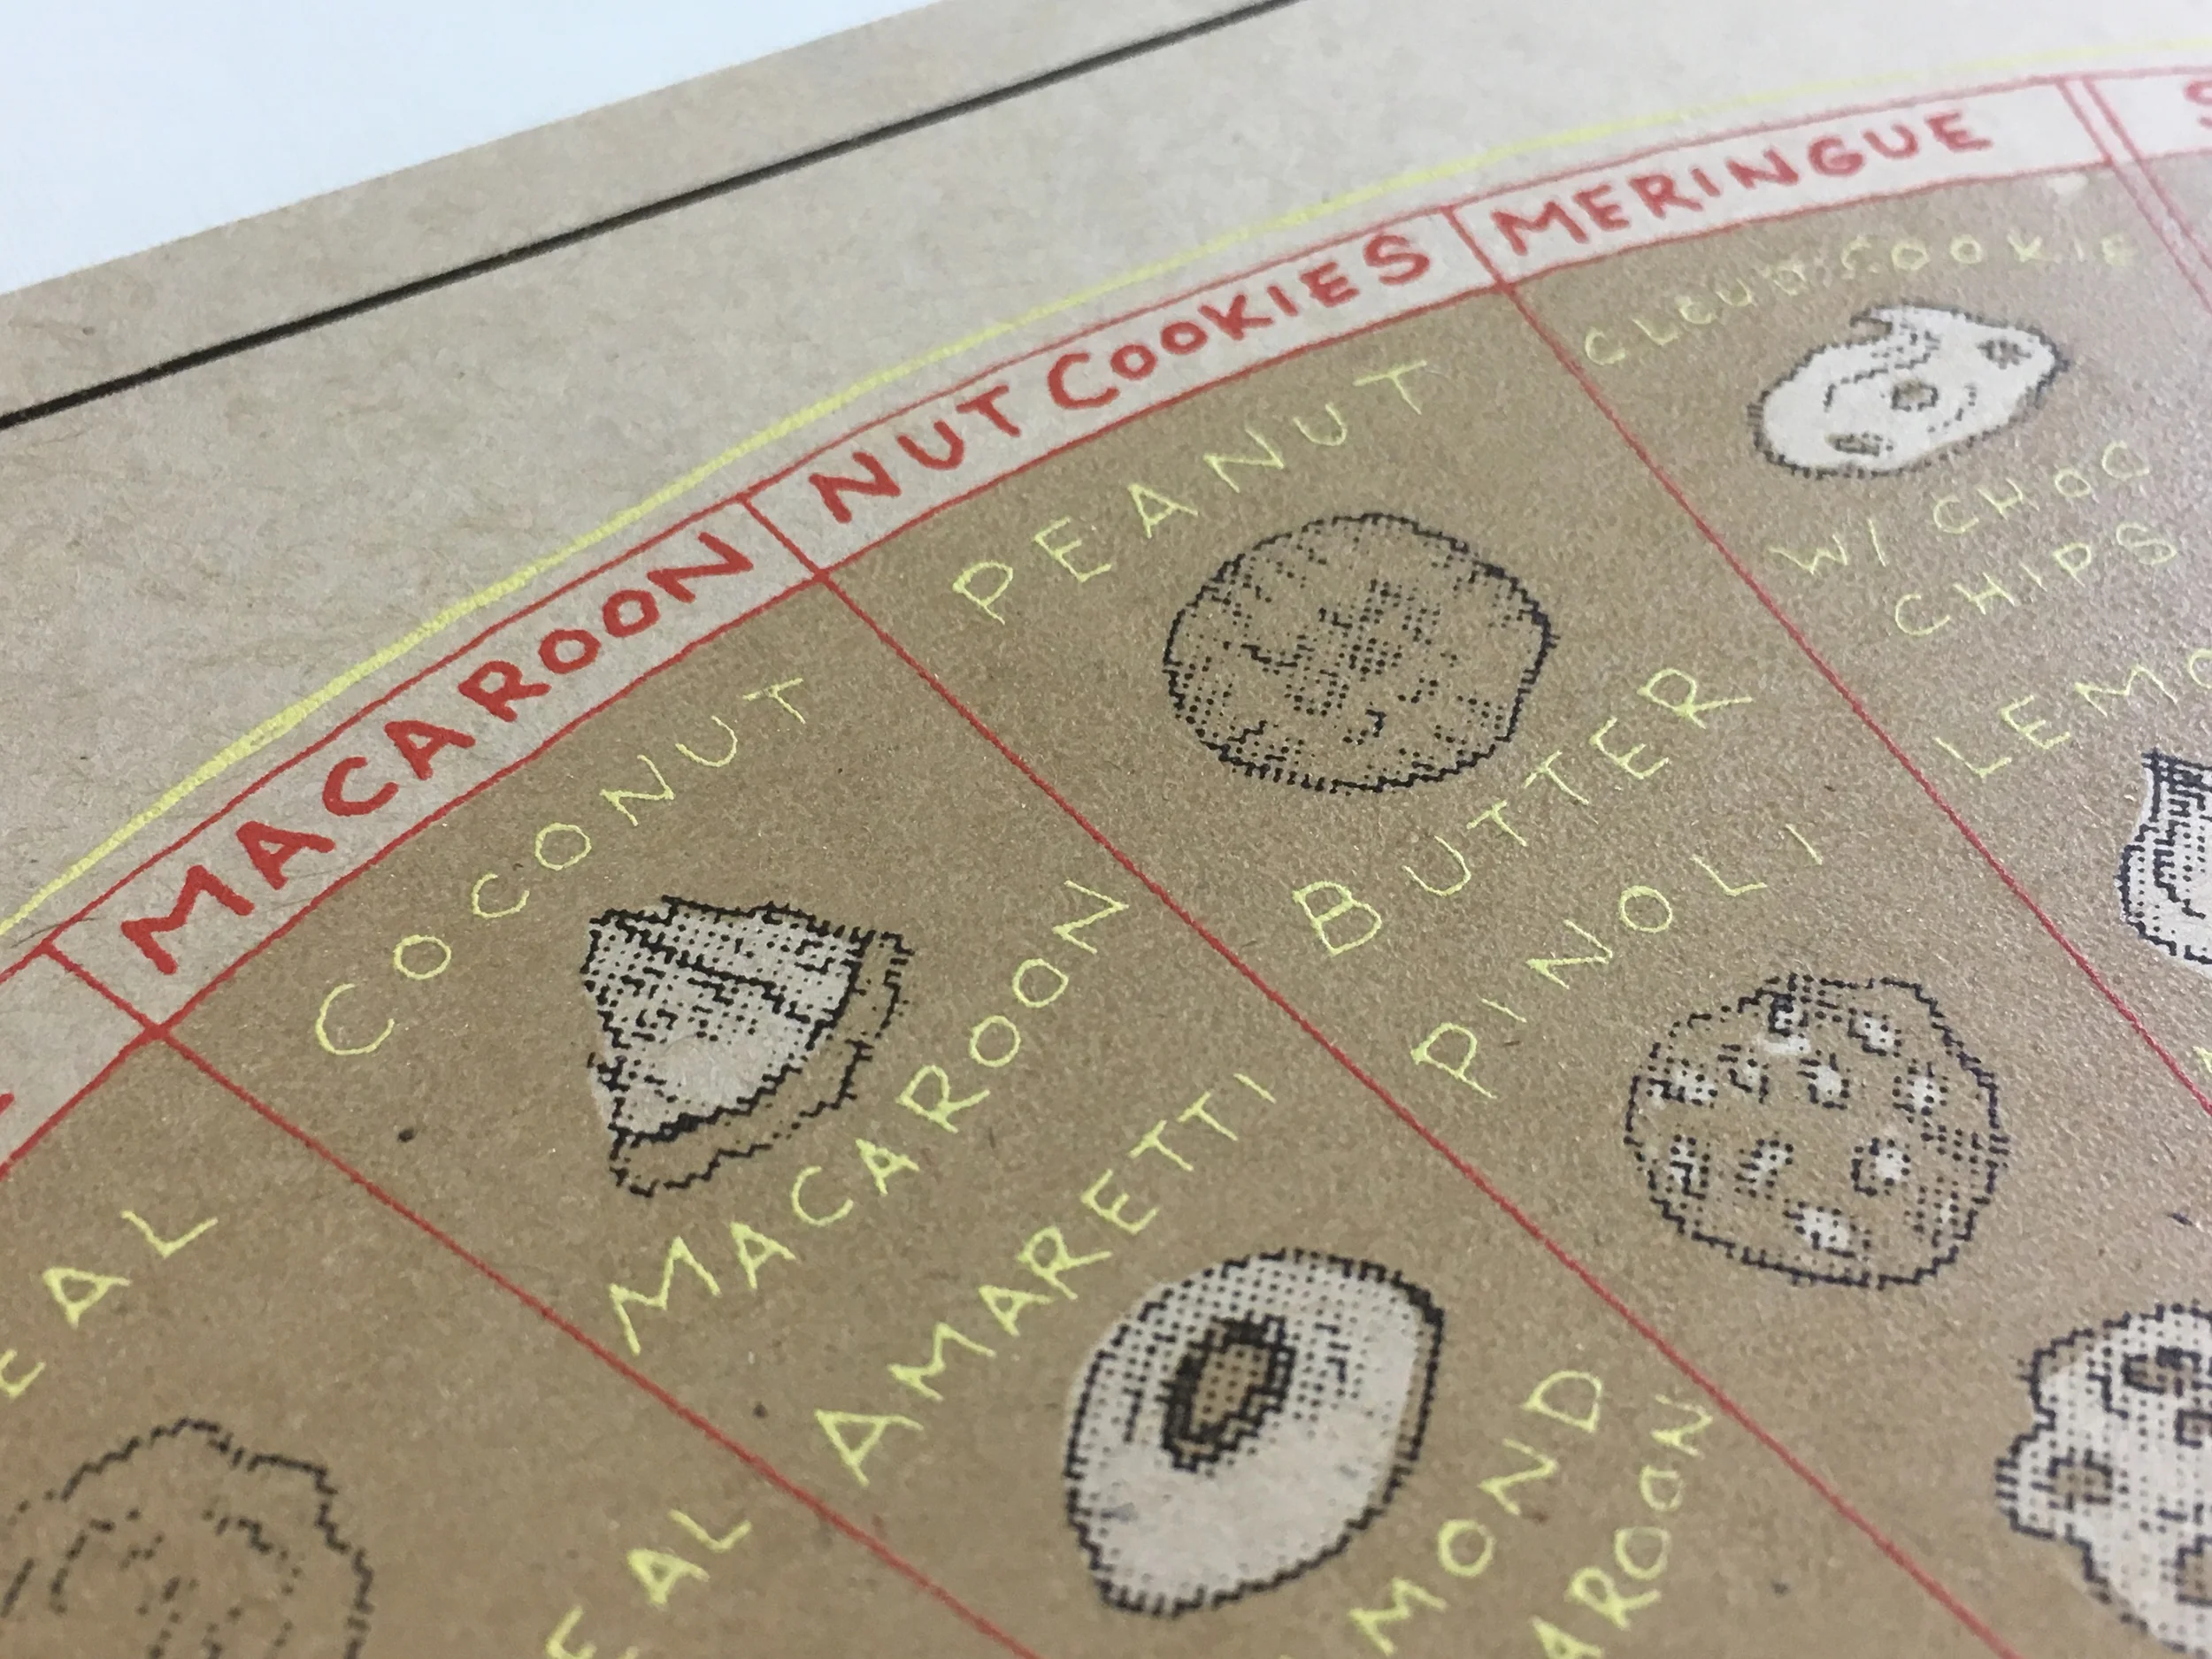 MACAROON
NUT COOKIES
MERINGUE
COCONUT
MACAROON
AMARETTI
PEANUT
BUTTER
PINOLI
CLOUD COOKIE
W/ CHOC
CHIPS